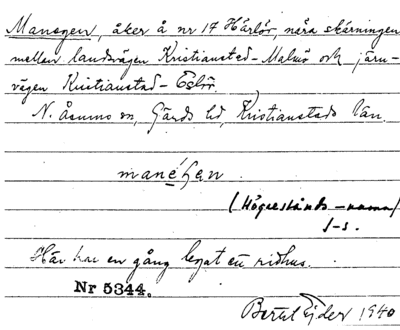 Manegen, åker å nr 17 Härlöv, nära skärningen
mellan landsvägen Kristianstad-Malmö och järn-
vägen Kristianstad-Eslöv.
N. Åsums sn, Gärds hd, Kristianstads län.
manéʃen
(Högrestånds-namn)
I-s.
Här har en gång legat ett ridhus.
Nr 5344.
Bertil Ejder 1940